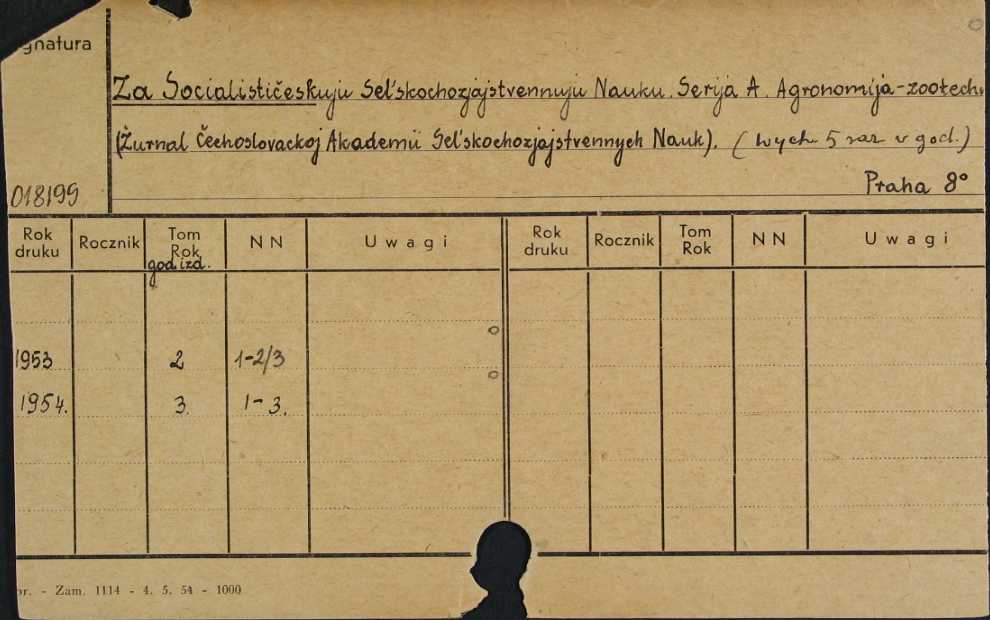 gnatura
Za Socialističeskuju Sel'skochozjajstvennuju Nauku. Serija A. Agronomija-zootech.
(Žurnal Čechoslovackoj Akademii Sel'skochozjajstvennych Nauk). (wych. 5 raz v god.)
018199
Praha 8°
Rok druku Rocznik Tom Rok NN Uwagi Rok druku Rocznik Tom Rok NN Uwagi
god izd.
1953 2 1-2/3
1954. 3. 1-3.
or. - Zam. 1114 - 4. 5. 54 - 1000